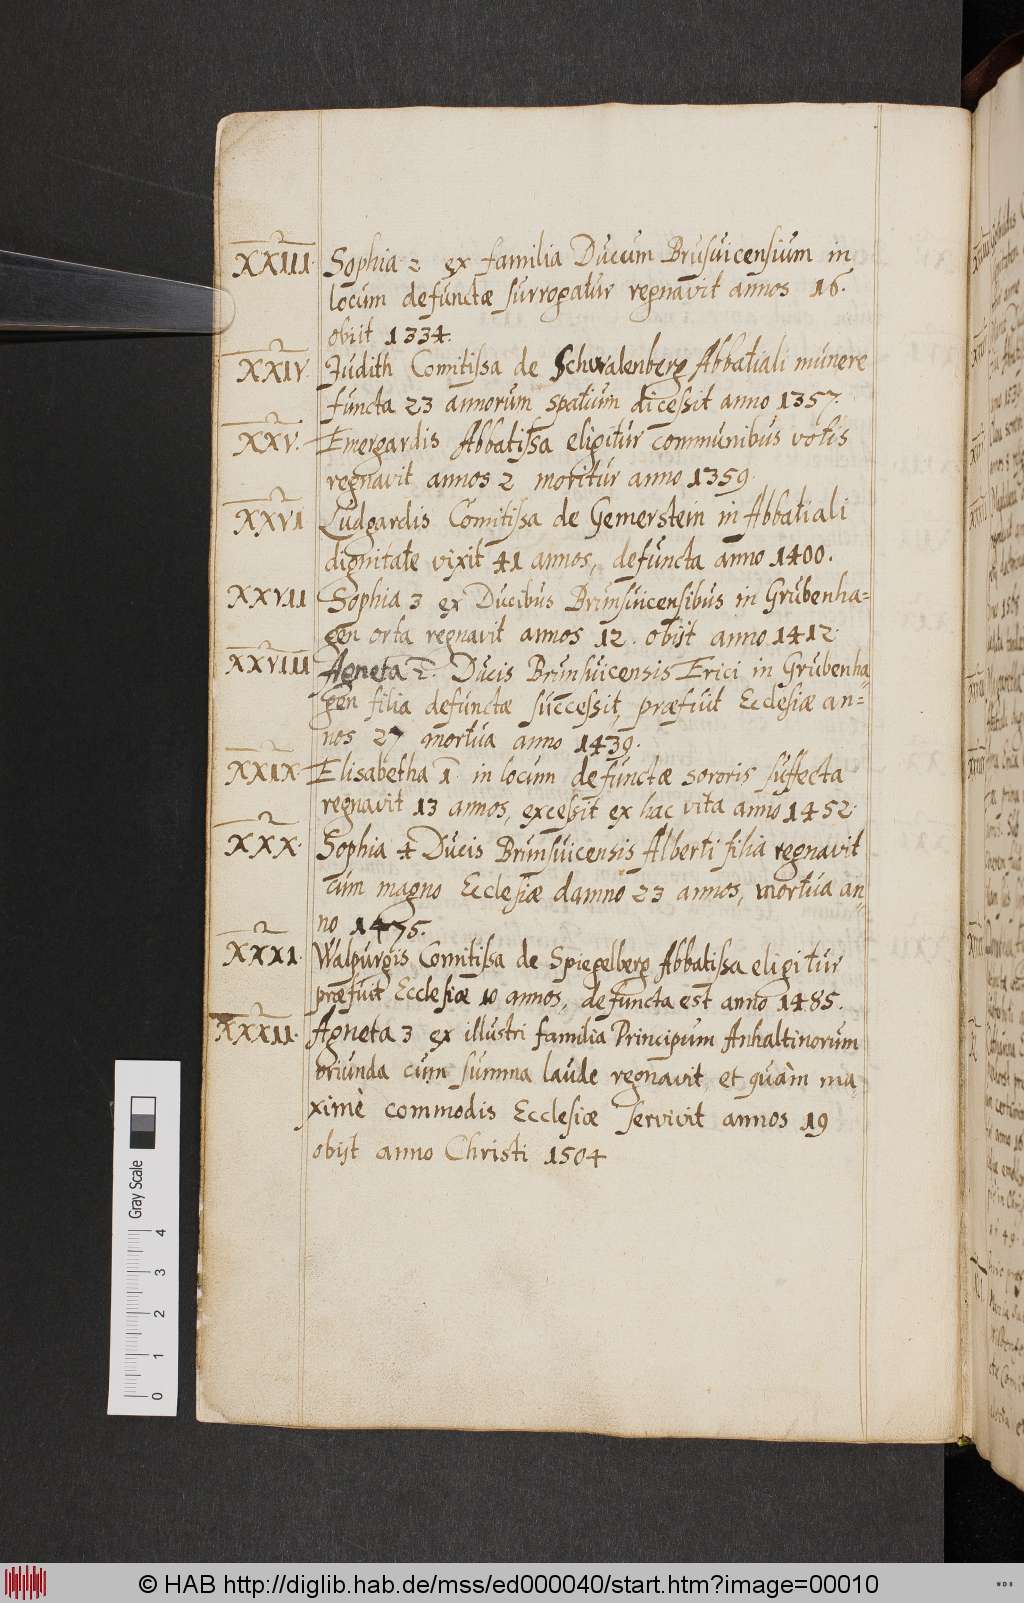 XXIII. Sophia 2 ex familia Ducum Brunsuicensium in
locum defunctæ surrogatur regnavit annos 16.
obiit 1334.
XXIV. Judith Comitissa de Schwalenberg Abbatiali munere
functa 23 annorum spatium dicessit anno 1357.
XXV. Emergardis Abbatissa eligitur communibus votis
regnavit annos 2 moritur anno 1359.
XXVI Ludgardis Comitissa de Gemerstein in Abbatiali
dignitate vixit 41 annos, defuncta anno 1400.
XXVII Sophia 3 ex Ducibus Brunsuicensibus in Grubenha=
gen orta regnavit annos 12. obijt anno 1412.
XXVIII Agneta 2. Ducis Brunsuicensis Erici in Grubenha=
gen filia defunctæ successit, præfuit Ecclesiæ an=
nos 27 mortua anno 1439.
XXIX. Elisabetha 1. in locum defunctæ sororis suffecta
regnavit 13 annos, excessit ex hac vita anno 1452.
XXX. Sophia 4 Ducis Brunsuicensis Alberti filia regnavit
cum magno Ecclesiæ damno 23 annos, mortua an=
no 1475.
XXXI. Walpurgis Comitissa de Spiegelberg Abbatissa eligitur
præfuit Ecclesiæ 10 annos, defuncta est anno 1485.
XXXII. Agneta 3 ex illustri familia Principum Anhaltinorum
oriunda cum summa laude regnavit et quàm ma=
ximè commodis Ecclesiæ servivit annos 19
obijt anno Christi 1504
Gray Scale
0 1 2 3 4
© HAB http://diglib.hab.de/mss/ed000040/start.htm?image=00010